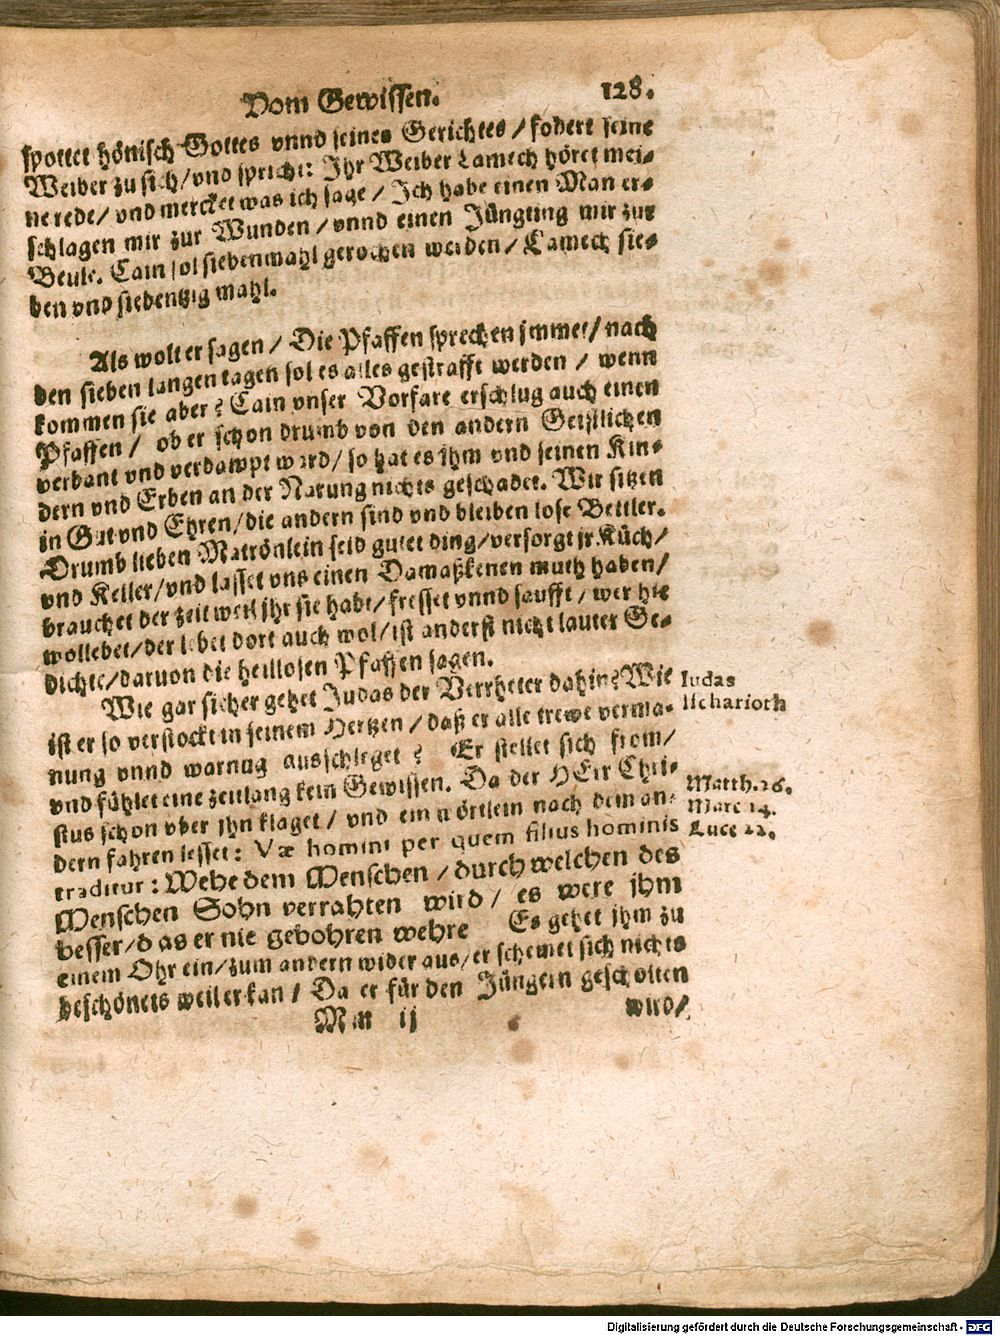 Vom Gewissen. 128.
spottet hönisch Gottes vnnd seines Gerichtes / fodert seine
Weiber zu sich / vnd spricht: Ihr Weiber Lamech höret mei-
ne rede / vnd mercket was ich sage / Ich habe einen Man er-
schlagen mir zur Wunden / vnnd einen Jüngling mir zur
Beule. Cain sol siebenmahl gerochen werden / Lamech sie-
ben vnd siebentzig mahl.
Als wolt er sagen / Die Pfaffen sprechen jmmer / nach
den sieben langen tagen sol es alles gestrafft werden / wenn
kommen sie aber? Cain vnser Vorfare erschlug auch einen
Pfaffen / ob er schon drumb von den andern Geistlichen
verbant vnd verdampt ward / so hat es ihm vnd seinen Kin-
dern vnd Erben an der Narung nichts geschadet. Wir sitzen
in Gut vnd Ehren / die andern sind vnd bleiben lose Bettler.
Drumb lieben Matrönlein seid gutet ding / versorgt jr Küch /
vnd Keller / vnd lasset vns einen Damaßkenen muth haben /
brauchet der zeit weil jhr sie habt / fresset vnnd saufft / wer hie
wollebet / der lebet dort auch wol / ist anderst nicht lauter Ge-
dichte / daruon die heillosen Pfaffen sagen.
Wie gar sicher gehet Judas der Verrheter dahin? Wie
ist er so verstockt in seinem Hertzen / daß er alle trewe verma-
nung vnnd warnug ausschleget? Er stellet sich from /
vnd fühlet eine zeitlang kein Gewissen. Da der HErr Chri-
stus schon vber ihn klaget / vnd ein wörtlein nach dem an-
dern fahren lesset: Væ homini per quem filius hominis
traditur: Wehe dem Menschen / durch welchen des
Menschen Sohn verrahten wird / es were ihm
besser / das er nie gebohren wehre Es gehet jhm zu
einem Ohr ein / zum andern wider aus / er schemet sich nichts
beschönets weil er kan / Da er für den Jüngern gescholten
Mm ij wird /
Iudas
Ischarioth
Matth. 26.
Marc 14.
Luce 22.
Digitalisierung gefördert durch die Deutsche Forschungsgemeinschaft - DFG